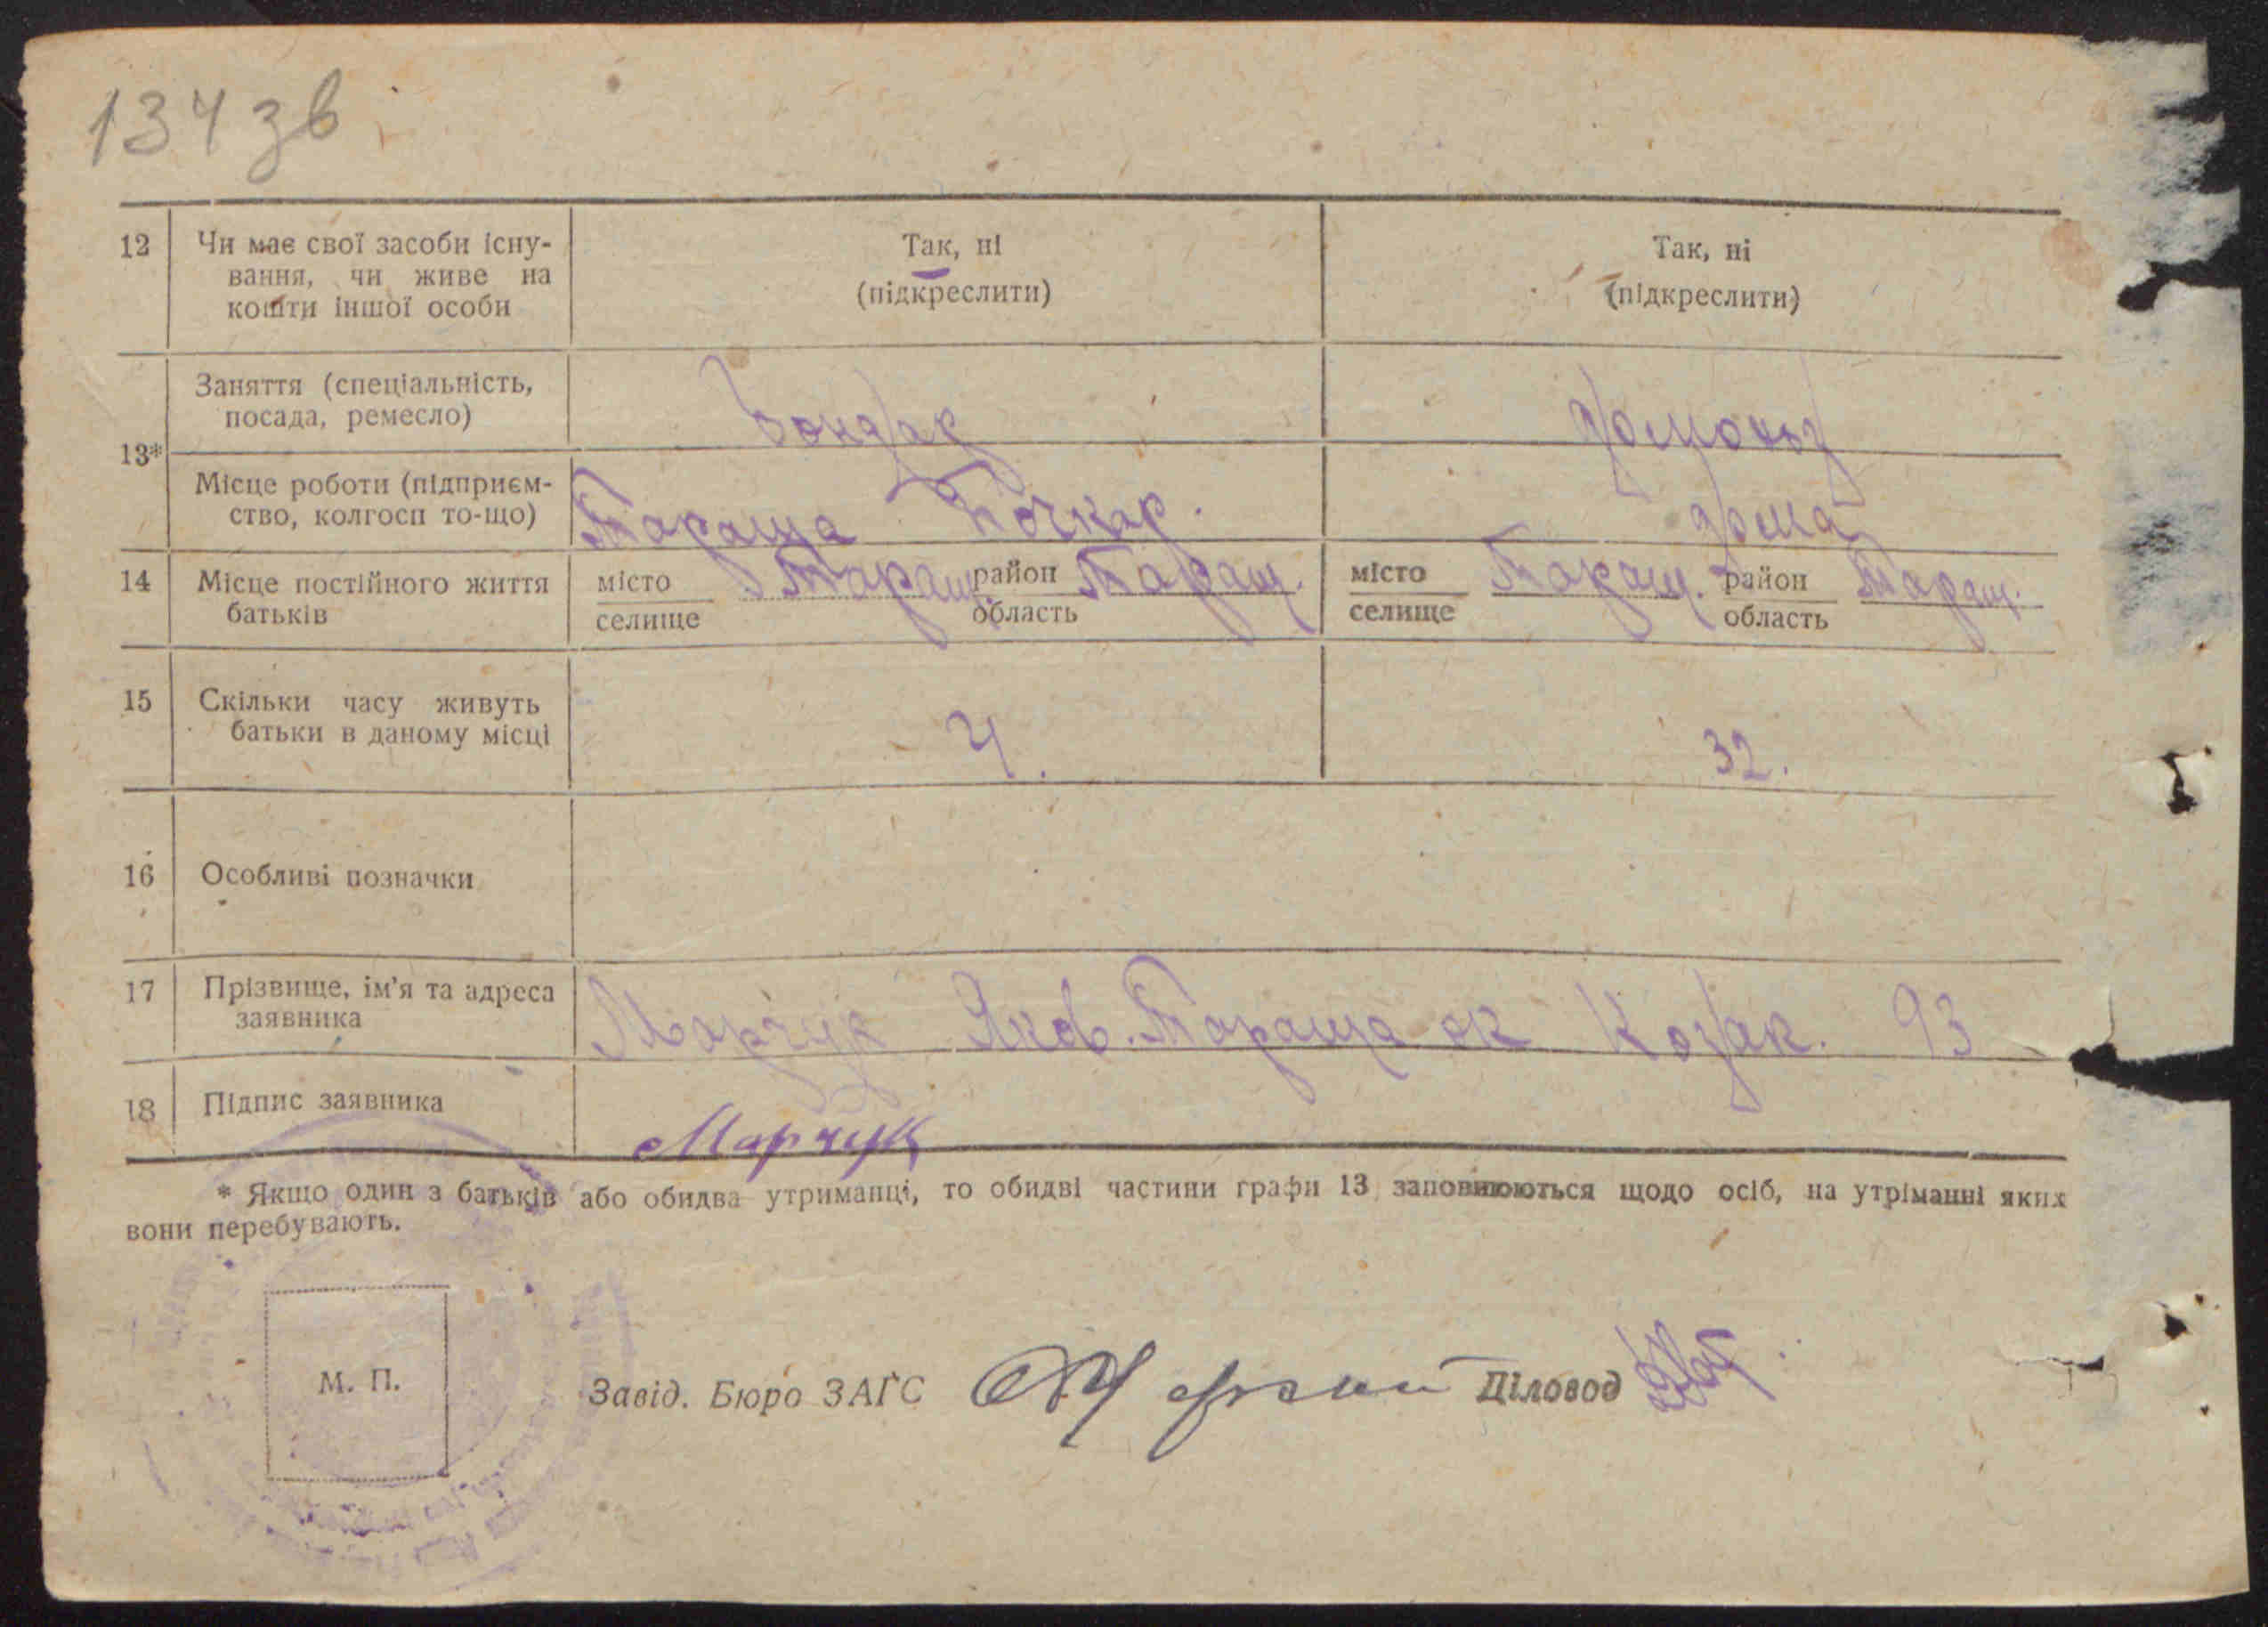 134 зв
12 Чи має свої засоби існу-
вання, чи живе на
кошти іншої особи
Так, ні
(підкреслити)
Так, ні
(підкреслити)
13* Заняття (спеціальність,
посада, ремесло)
Бондар
Місце роботи (підприєм-
ство, колгосп то-що)
Тараща Бочкар.
дома
14 Місце постійного життя
батьків
місто
селище
Таращ.
район
область
Таращ.
місто
селище
Таращ.
район
область
Таращ.
15 Скільки часу живуть
батьки в даному місці
4.
32.
16 Особливі позначки
17 Прізвище, ім'я та адреса
заявника
Марчук Яков. Тараща ок Козак. 93
18 Підпис заявника
Марчук
* Якщо один з батьків або обидва утриманці, то обидві частини графи 13 заповнюються щодо осіб, на утріманні яких
вони перебувають.
М. П.
Завід. Бюро ЗАГС
Діловод